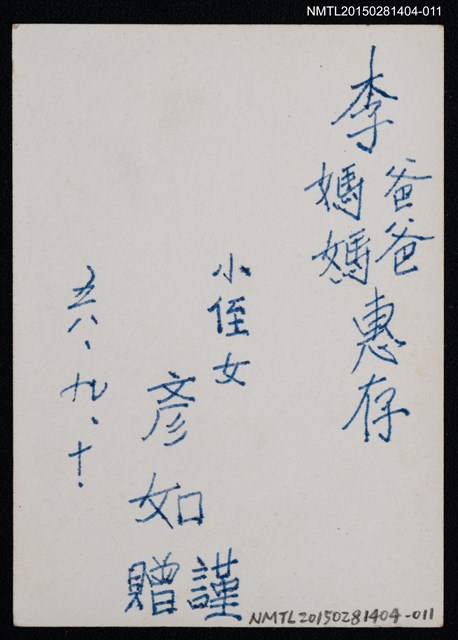 NMTL20150281404-011
李爸爸
媽媽惠存
小侄女
彥如謹贈
五八、九、十.
NMTL20150281404-011